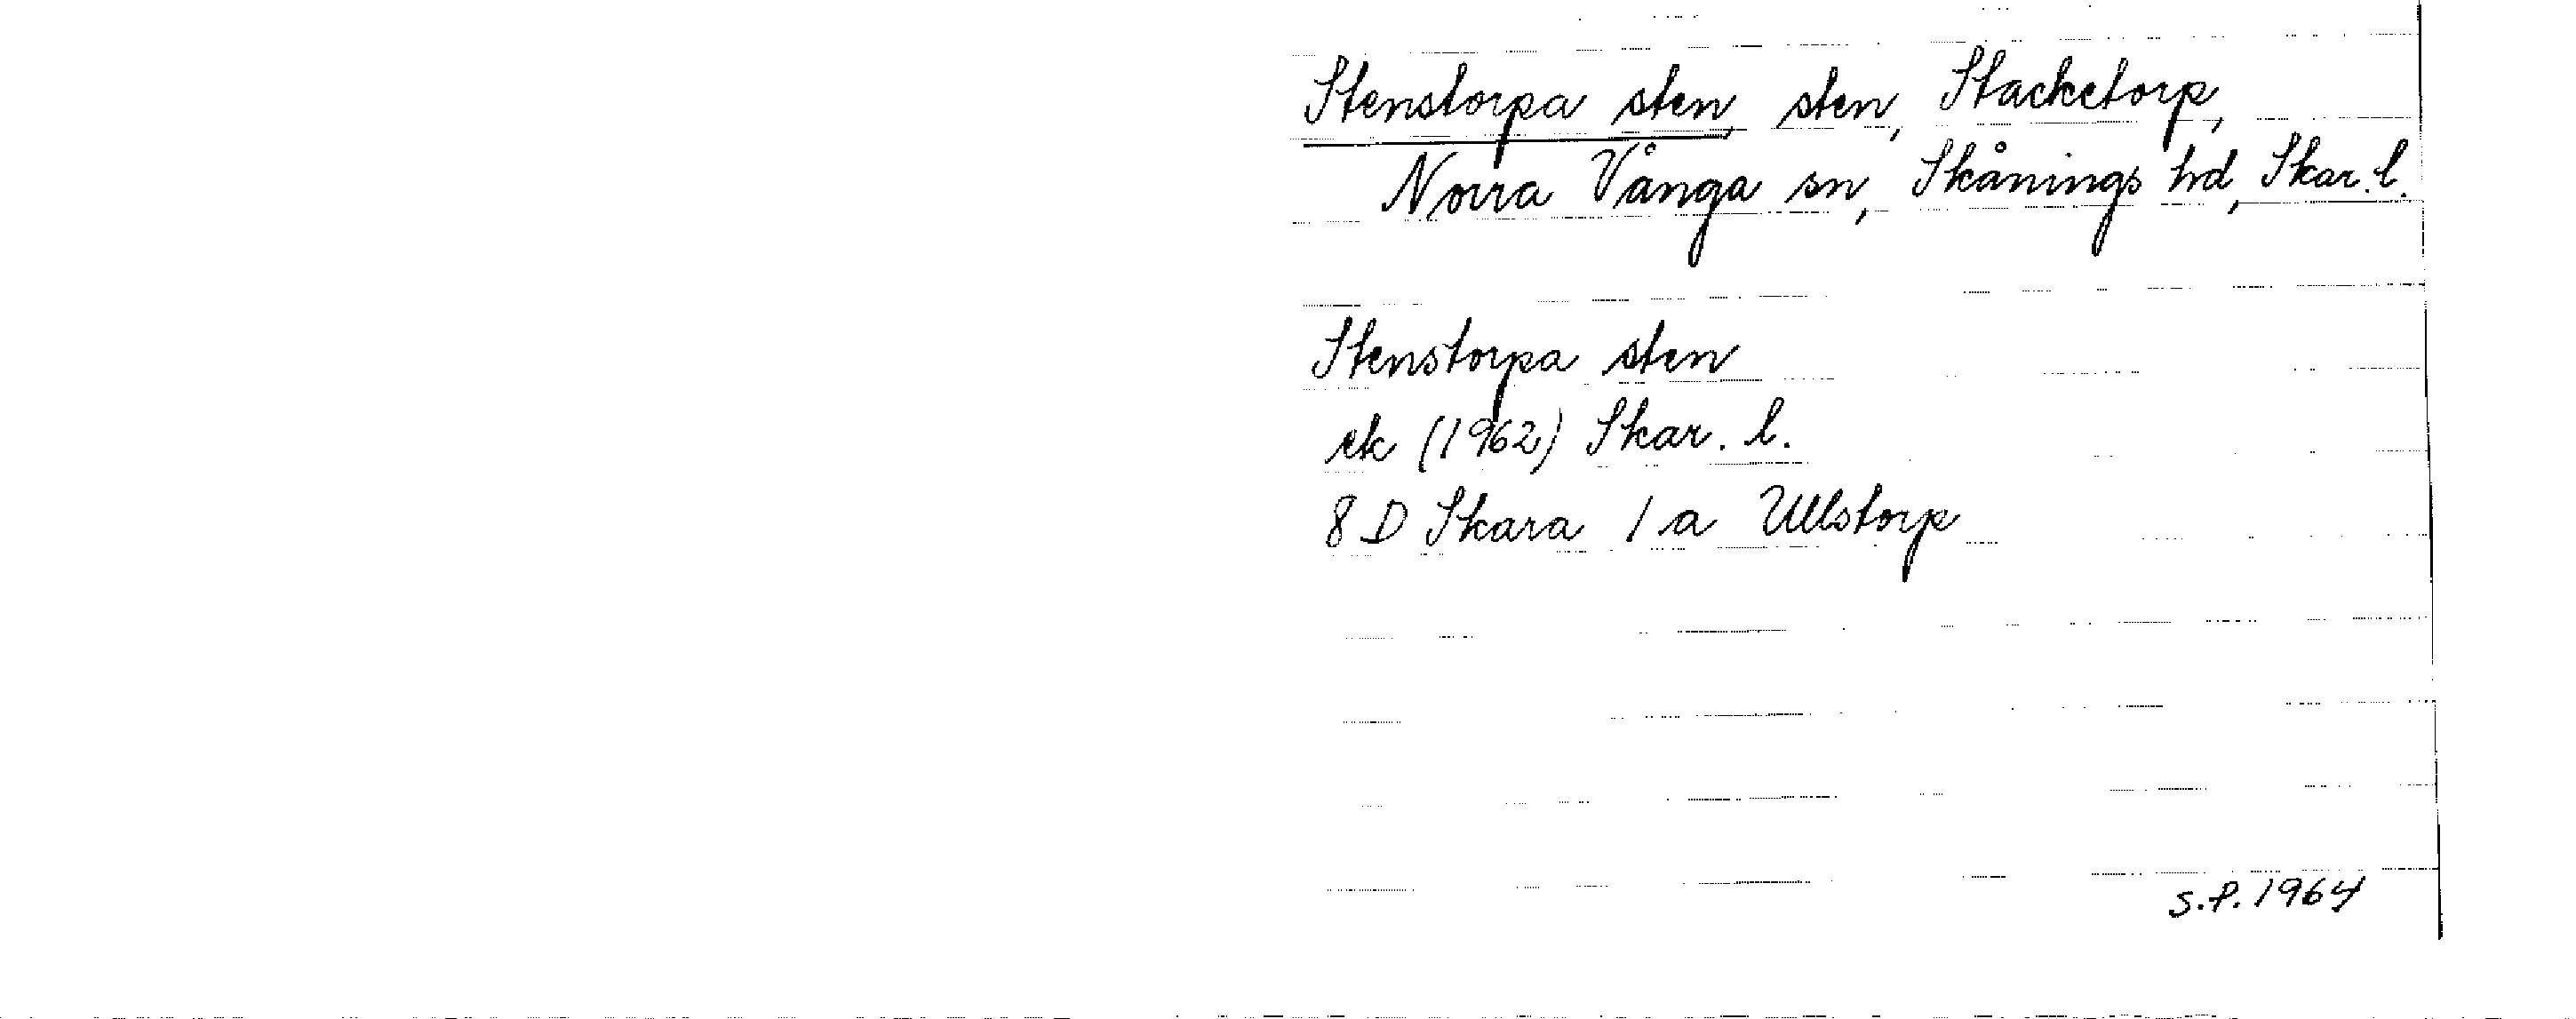 Stenstorpa sten, sten, Stacketorp,
Norra Vånga sn, Skånings hd, Skar. l.
Stenstorpa sten
ek (1962) Skar. l.
8 D Skara 1 a Ullstorp
S.P. 1964